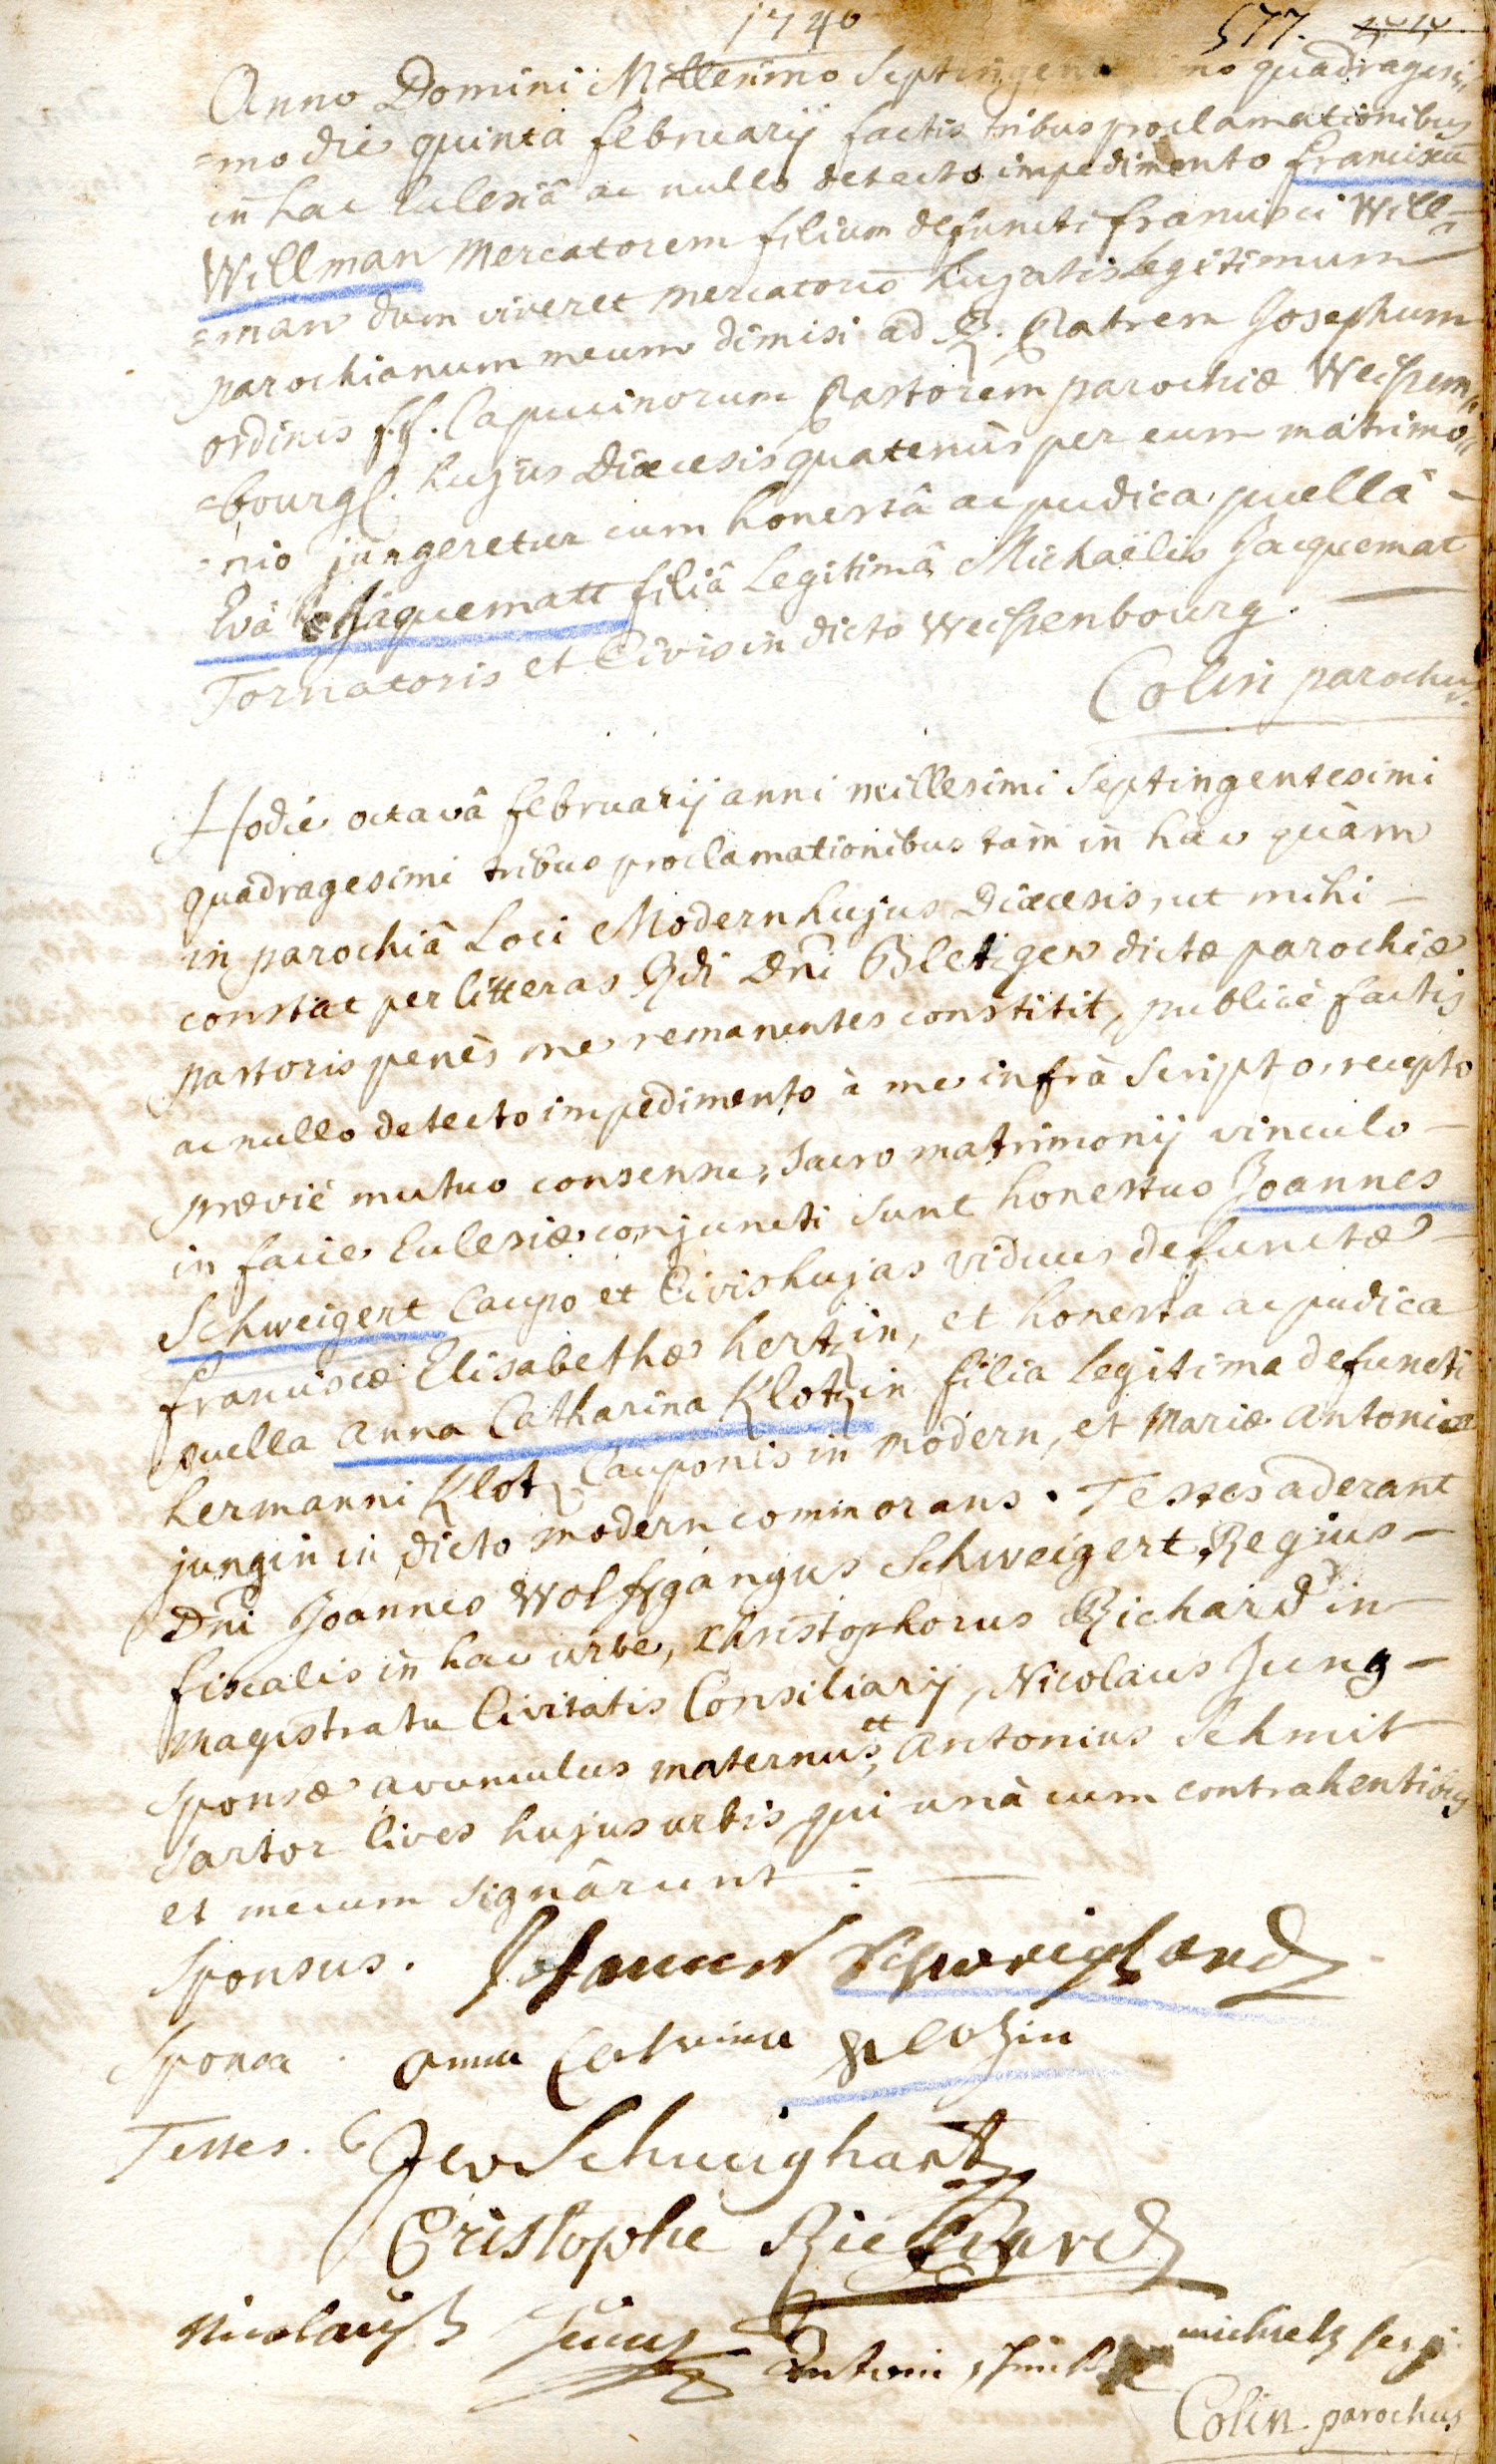 1740
577.
Anno Domini Millesimo Septingent mo quadragesi
=mo die quinta februarij factis tribus proclamationibus
in hac Eclesiâ ac nullo detecto impedimento franciscū
Willman Mercatorem filium defuncti francisci Will=
=man dum viveret mercatoris hujatis Legitimum
parochianum meum dimisi ad R. Patrem Josephum
ordinis ff. Capucinorum Pastorem parochiæ Weissem,,
=bourg. hujus Diœcesis quatenùs per eum matrimo,,
=nio jungeretur cum honestâ ac pudica puellâ –
Evâ Jaquematt filiâ Legitimâ Michaëlis Jacquemat
Tornatoris et Civis in dicto Weissenbourg. —
Colin parochus
Hodie octavâ februarij anni millesimi Septingentesimi
quadragesimi tribus proclamationibus tàm in hac quàm
in parochiâ Loci Modern hujus Diœcesis, ut mihi –
constat per litteras Rdi Dni Bletzger dictæ parochiæ
pastoris penès me remanentes constitit, publicè factis
ac nullo detecto impedimento à me infrà Scripto, recepto
præviè mutuo consensu, sacro matrimonij vinculo –
in facie Eclesiæ conjuncti sunt honestus Joannes
Schweigert Caupo et Civis hujas viduus defunctæ –
franciscæ Elisabethæ hertzin, et honesta ac pudica
puella Anna Catharina Klotzin filia legitima defuncti
hermanni Klotz Cauponis in modern, et Mariæ Antoniæ
jungin in dicto modern commorans. Testes aderant
Dni Joannes Wolffgangus Schweigert Regius –
fiscalis in hac urbe, Christophorus Richard in –
magistratu Civitatis Consiliarij, Nicolaus Jung –
sponsæ avunculus maternus, et Antonius Schmit
sartor Cives hujus urbis qui unà cum contrahentibus
et mecum signârunt : —
Sponsus. Johannes Schweighard
Sponsa. anna Catrina Klotzin
Testes. Schweighart
Cristophe Richard
Nicolauß Jung Antoni Schmit
Colin parochus